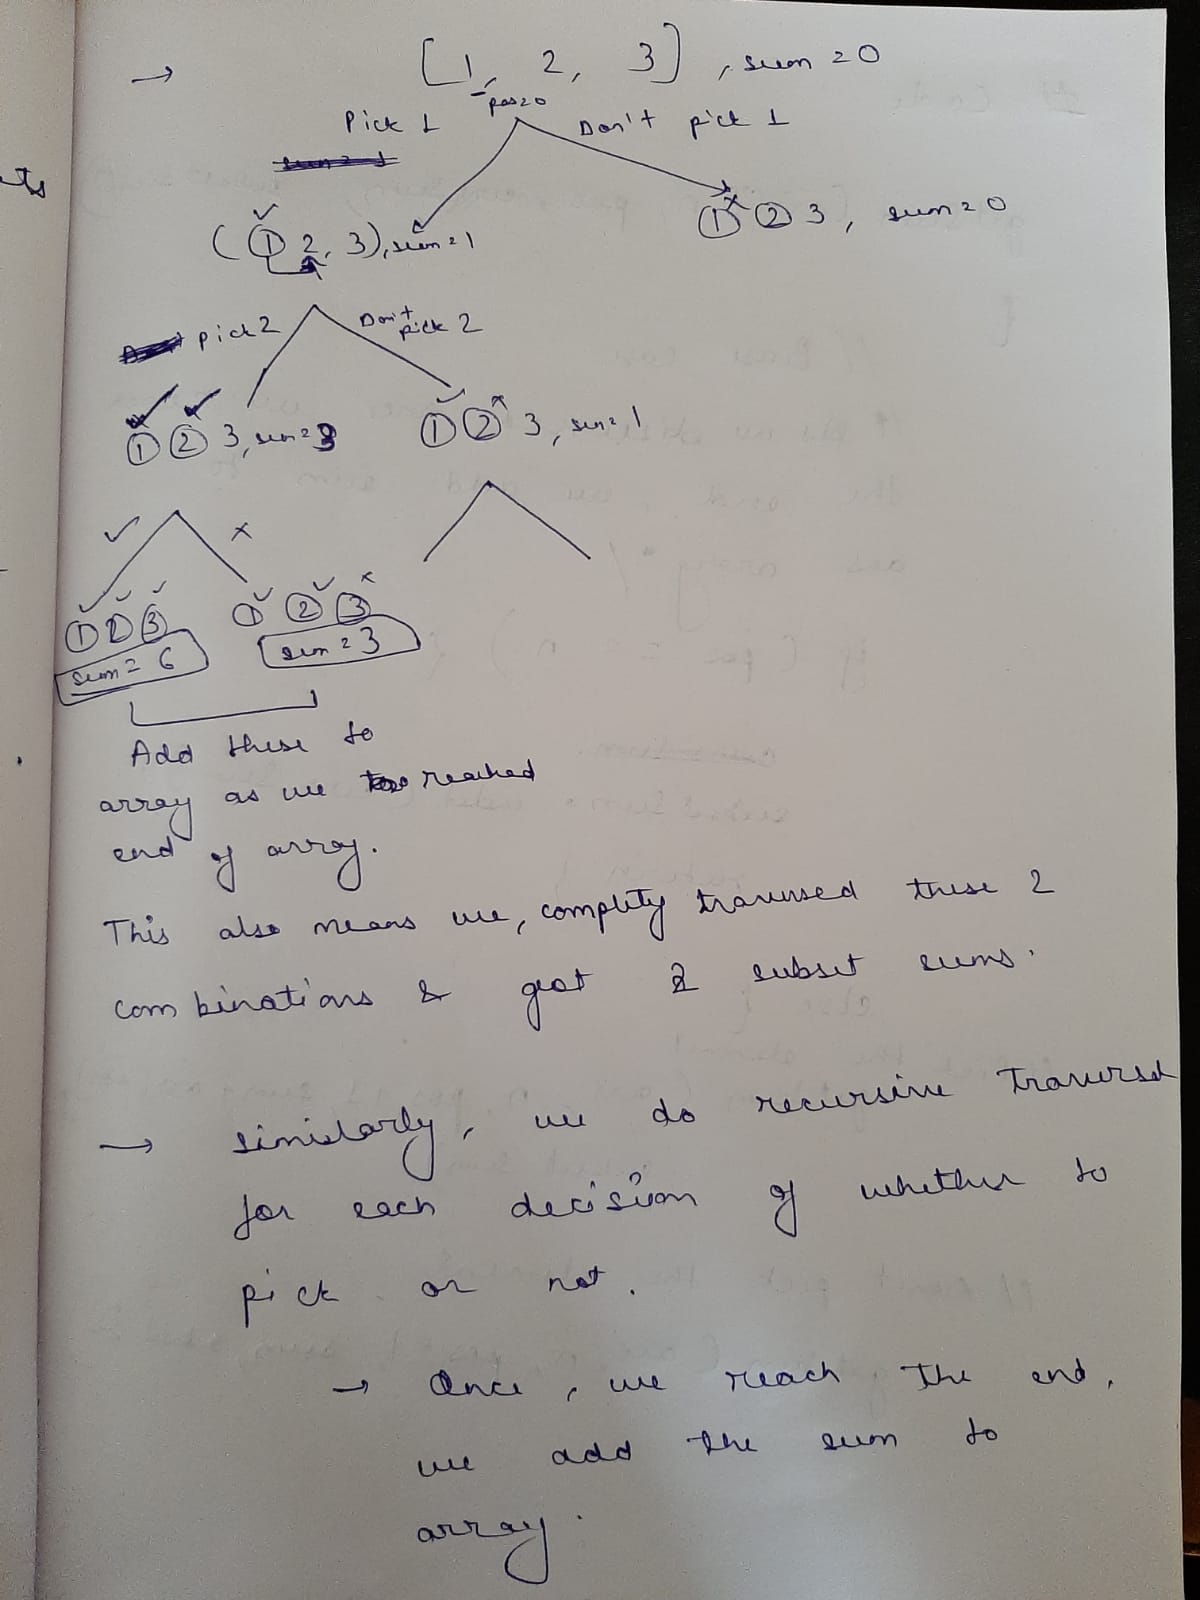 → [1, 2, 3], sum = 0
pos=0
Pick 1 Don't pick 1
(1 2, 3), sum=1
1 2 3, sum=0
pick 2 Don't pick 2
1 2 3, sum=3
1 2 3, sum=1
✓ x
1 2 3 1 2 3
sum = 6 sum = 3
Add these to
array as we reached
end of array.
This also means we, complety traversed these 2
combinations & got 2 subset sums.
→ similarly, we do recursive Traversal
for each decision of whether to
pick or not.
→ Once, we reach the end,
we add the sum to
array.